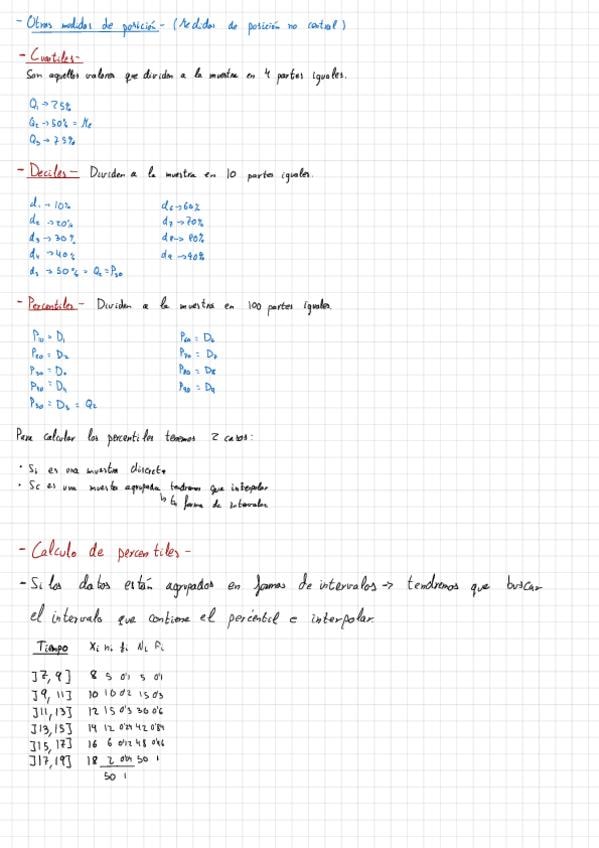 - Otras medidas de posición - (Medidas de posición no central)
- Cuartiles -
Son aquellos valores que dividen a la muestra en 4 partes iguales.
Q1 → 25%
Q2 → 50% = Me
Q3 → 75%
- Deciles - Dividen a la muestra en 10 partes iguales.
d1 → 10% d6 → 60%
d2 → 20% d7 → 70%
d3 → 30% d8 → 80%
d4 → 40% d9 → 90%
d5 → 50% = Q2 = P50
- Percentiles - Dividen a la muestra en 100 partes iguales.
P10 = D1 P60 = D6
P20 = D2 P70 = D7
P30 = D3 P80 = D8
P40 = D4 P90 = D9
P50 = D5 = Q2
Para calcular los percentiles tenemos 2 casos:
· Si es una muestra discreta
· Si es una muestra agrupada tendremos que interpolar
↳ forma de intervalos
- Calculo de percentiles -
- Si los datos están agrupados en formas de intervalos → tendremos que buscar
el intervalo que contiene el percentil e interpolar.
Tiempo Xi ni fi Ni Fi
]7, 9] 8 5 0'1 5 0'1
]9, 11] 10 10 0'2 15 0'3
]11, 13] 12 15 0'3 30 0'6
]13, 15] 14 12 0'24 42 0'84
]15, 17] 16 6 0'12 48 0'96
]17, 19] 18 2 0'04 50 1
50 1